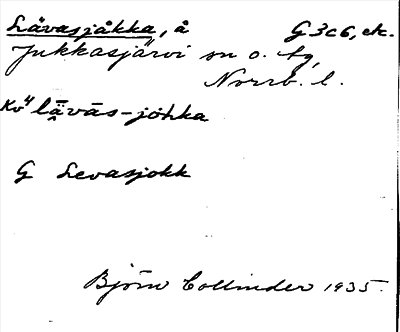 Lävasjåkka, å G 3c6, ek.
Jukkasjärvi sn o. tg,
Norrb. l.
Kv" lä̮vās-johka
G Levasjokk
Björn Collinder 1935.